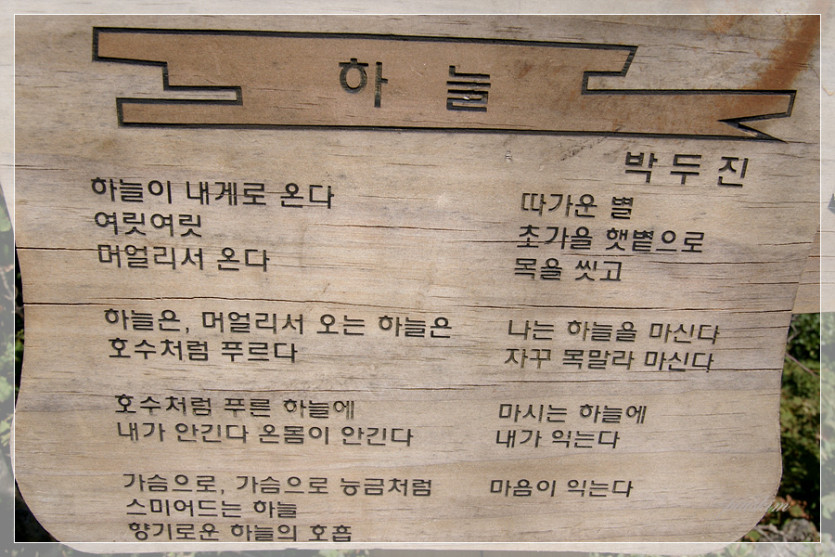 하늘
박두진
하늘이 내게로 온다
여릿여릿
머얼리서 온다
하늘은, 머얼리서 오는 하늘은
호수처럼 푸르다
호수처럼 푸른 하늘에
내가 안긴다 온몸이 안긴다
가슴으로, 가슴으로 능금처럼
스미어드는 하늘
향기로운 하늘의 호흡
따가운 별
초가을 햇볕으로
목을 씻고
나는 하늘을 마신다
자꾸 목말라 마신다
마시는 하늘에
내가 익는다
마음이 익는다